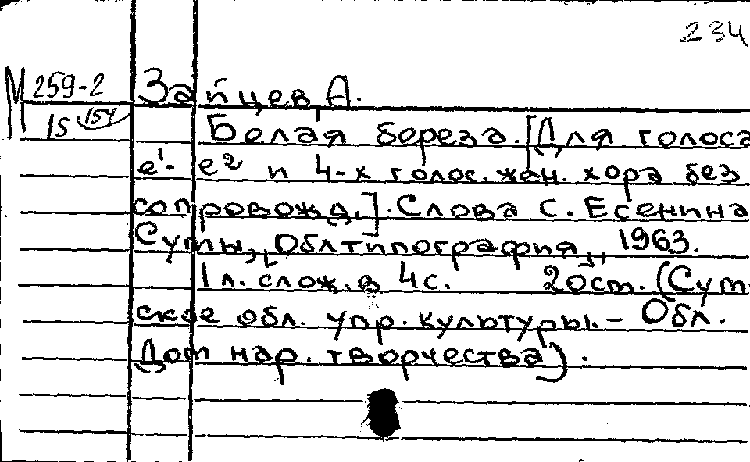 234
М 259-2
15 154
Зайцев, А.
Белая береза. [Для голоса
е¹- е² и 4-х голос. жен. хора без
сопровожд.]. Слова С. Есенина
Сумы, Облтипография, 1963.
1 л. слож. в 4 с. 20 см. (Сум-
ское обл. упр. культуры. - Обл.
Дом нар. творчества).